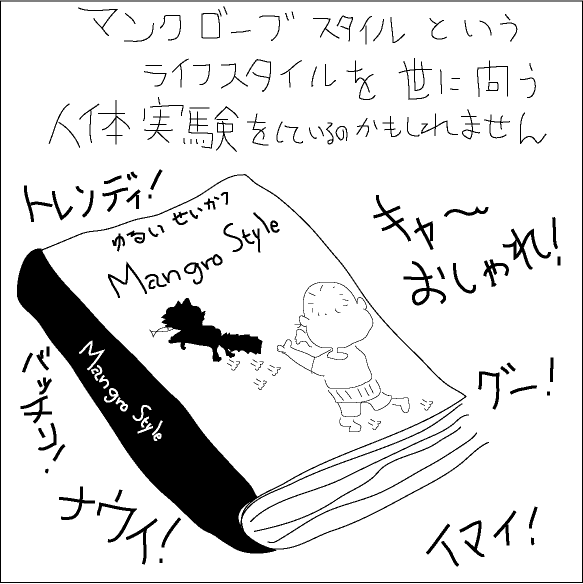 マングローブスタイルという
ライフスタイルを世に向う
人体実験をしているのかもしれません
トレンディ!
キャ〜
おしゃれ!
ゆるいせいかつ
Mangro Style
Mangro Style
バッチリ!
グー!
ナウイ!
イマイ!